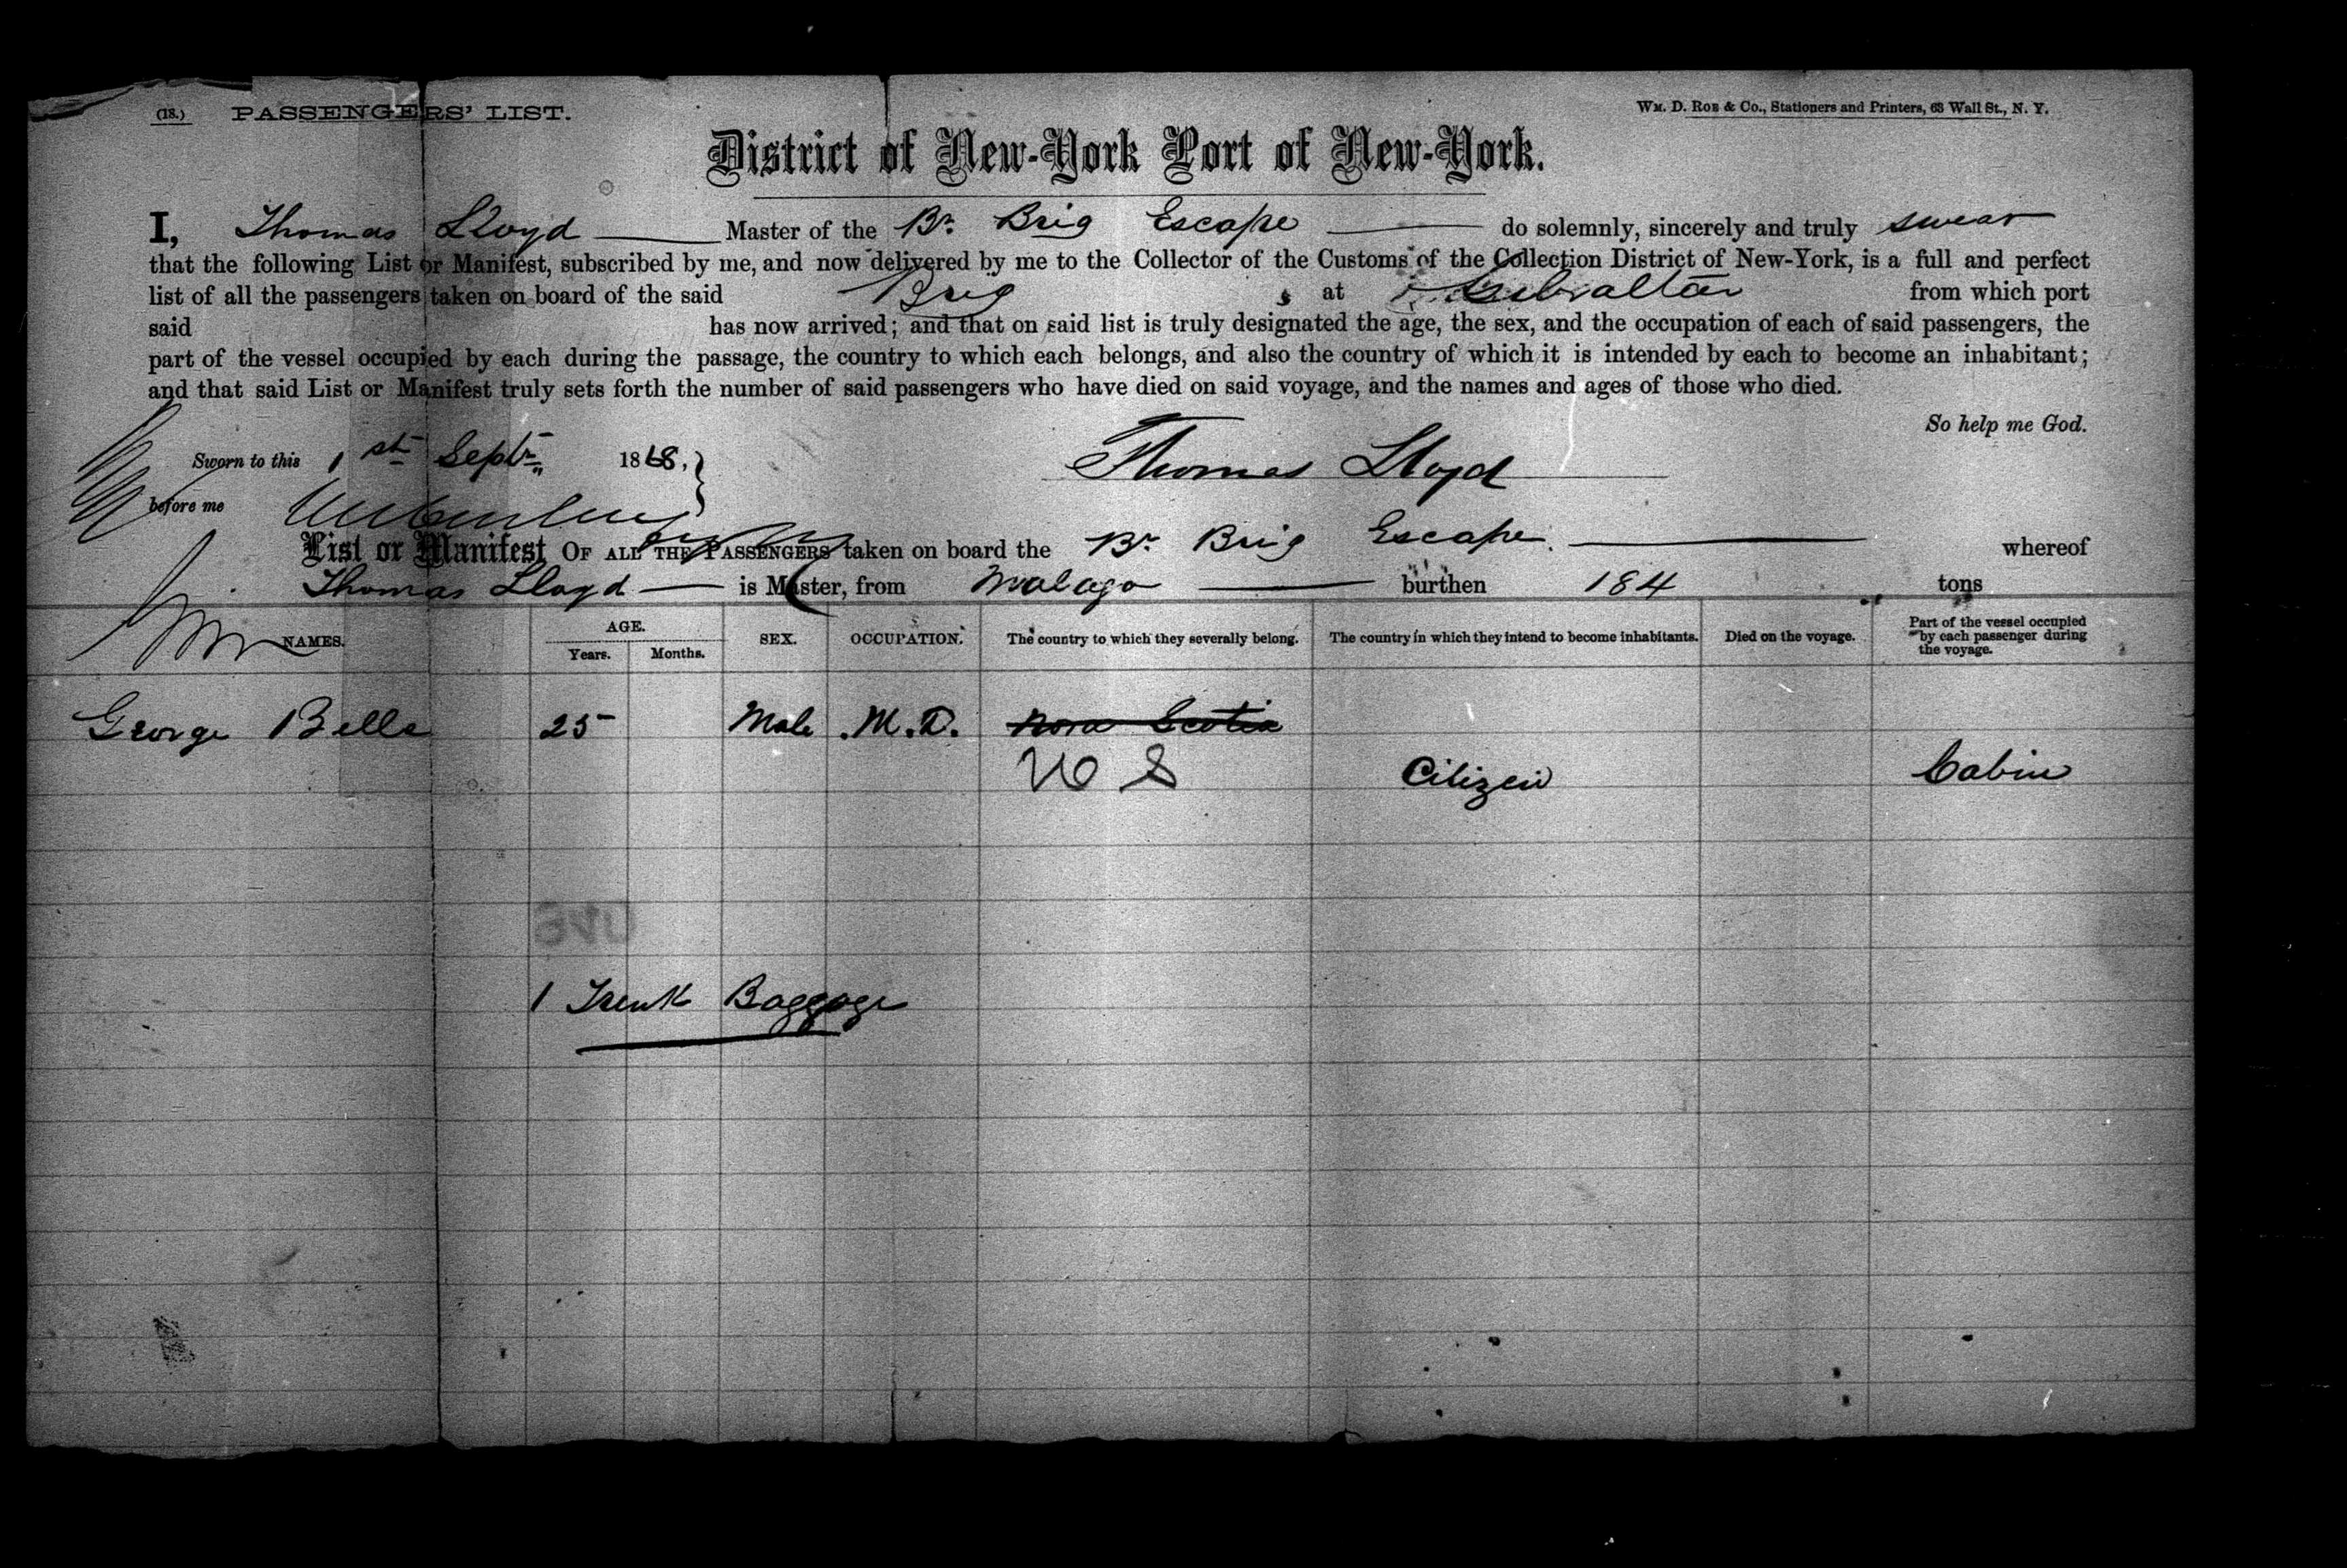 (18.) PASSENGERS' LIST.
Wm. D. Roe & Co., Stationers and Printers, 63 Wall St., N. Y.
District of New-York Port of New-York.
I, Thomas Lloyd Master of the Br. Brig Escape do solemnly, sincerely and truly swear
that the following List or Manifest, subscribed by me, and now delivered by me to the Collector of the Customs of the Collection District of New-York, is a full and perfect
list of all the passengers taken on board of the said Brig at Gibraltar from which port
said has now arrived; and that on said list is truly designated the age, the sex, and the occupation of each of said passengers, the
part of the vessel occupied by each during the passage, the country to which each belongs, and also the country of which it is intended by each to become an inhabitant;
and that said List or Manifest truly sets forth the number of said passengers who have died on said voyage, and the names and ages of those who died.
So help me God.
Sworn to this 1st Septr. 1868,
Thomas Lloyd
before me
List or Manifest OF ALL THE PASSENGERS taken on board the Br. Brig Escape. whereof
Thomas Lloyd is Master, from Malaga burthen 184 tons
NAMES. AGE. Years. Months. SEX. OCCUPATION. The country to which they severally belong. The country in which they intend to become inhabitants. Died on the voyage. Part of the vessel occupied by each passenger during the voyage.
George Bells 25 Male M.D. Nova Scotia
U S Citizen Cabin
1 Trunk Baggage